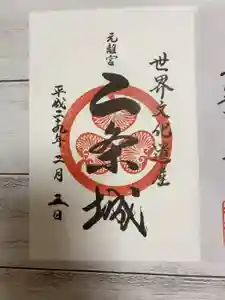 世界文化遺産
元離宮
二条城
平成二十九年二月三日